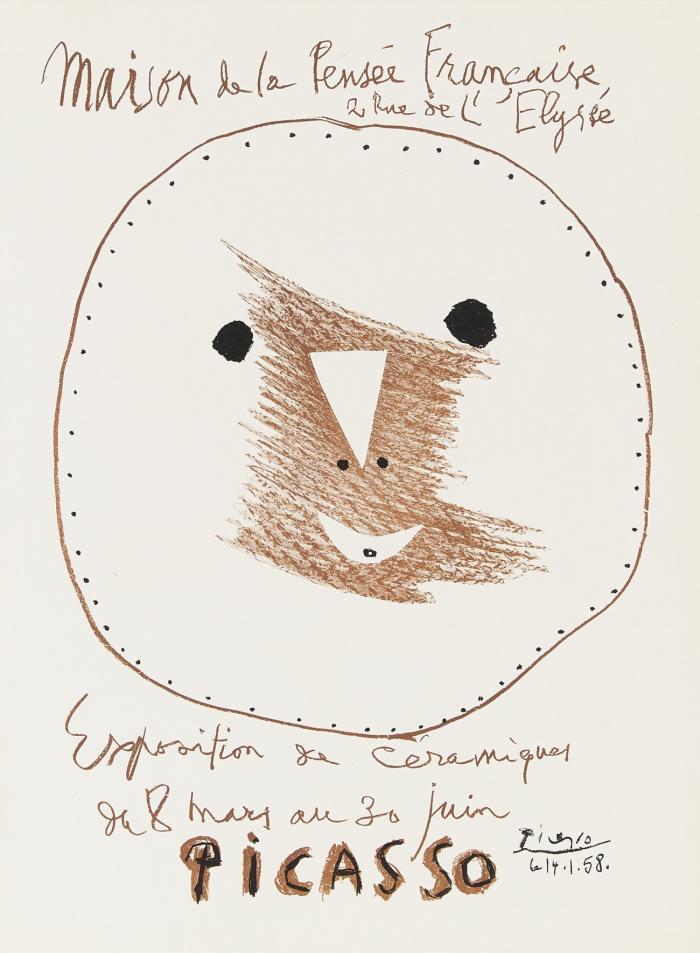 Maison de la Pensée Française
2 Rue de L'Elysée
Exposition de céramiques
du 8 mars au 30 juin
PiCASSO
Picasso
le 14.1.58.